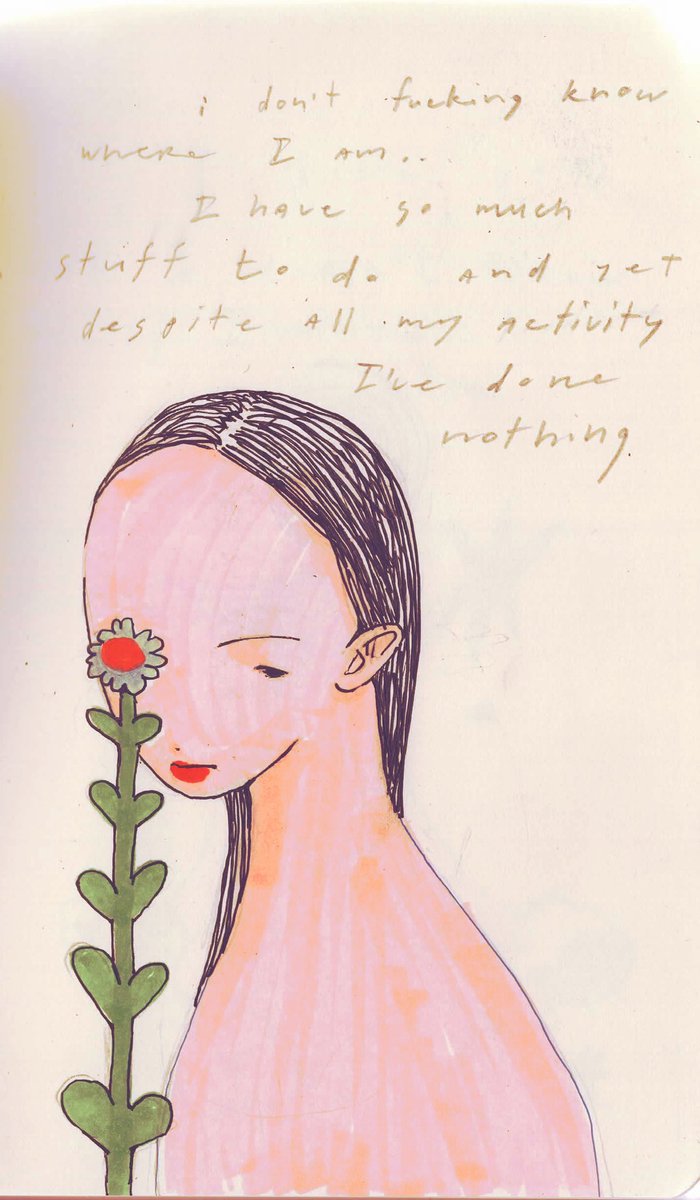 i don't fucking know
where I am..
I have so much
stuff to do and yet
despite all my activity
I've done
nothing